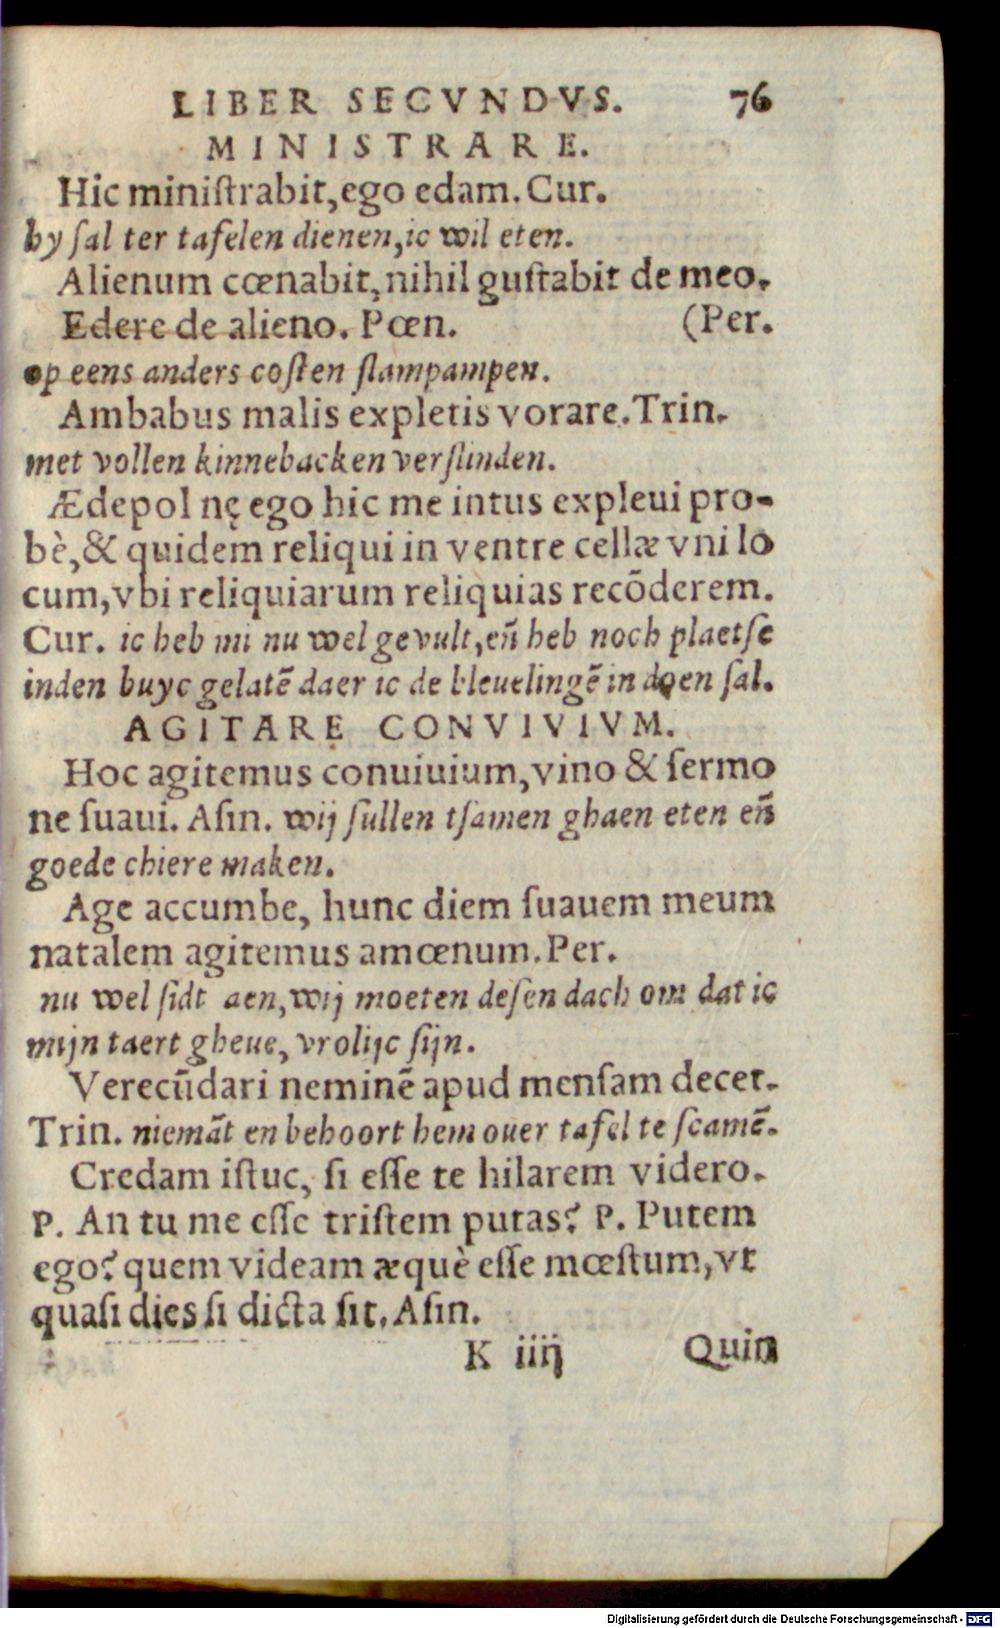 LIBER SECVNDVS. 76
MINISTRARE.
Hic miniſtrabit, ego edam. Cur.
hy ſal ter tafelen dienen, ic wil eten.
Alienum cœnabit, nihil guſtabit de meo.
Edere de alieno. Pœn. (Per.
op eens anders coſten ſlampampen.
Ambabus malis expletis vorare. Trin.
met vollen kinnebacken verſlinden.
Ædepol nę ego hic me intus expleui pro-
bè, & quidem reliqui in ventre cellæ vni lo
cum, vbi reliquiarum reliquias recōderem.
Cur. ic heb mi nu wel gevult, eñ heb noch plaetſe
inden buyc gelatē daer ic de bleuelingē in doen ſal.
AGITARE CONVIVIVM.
Hoc agitemus conuiuium, vino & ſermo
ne ſuaui. Aſin. wij ſullen tſamen ghaen eten eñ
goede chiere maken.
Age accumbe, hunc diem ſuauem meum
natalem agitemus amœnum. Per.
nu wel ſidt aen, wij moeten deſen dach om dat ic
mijn taert gheue, vrolijc ſijn.
Verecūdari neminē apud menſam decet.
Trin. niemāt en behoort hem ouer tafel te ſcamē.
Credam iſtuc, ſi eſſe te hilarem videro.
P. An tu me eſſe triſtem putas? P. Putem
ego? quem videam æquè eſſe mœſtum, vt
quaſi dies ſi dicta ſit. Aſin.
K iiij Quin
Digitalisierung gefördert durch die Deutsche Forschungsgemeinschaft - DFG